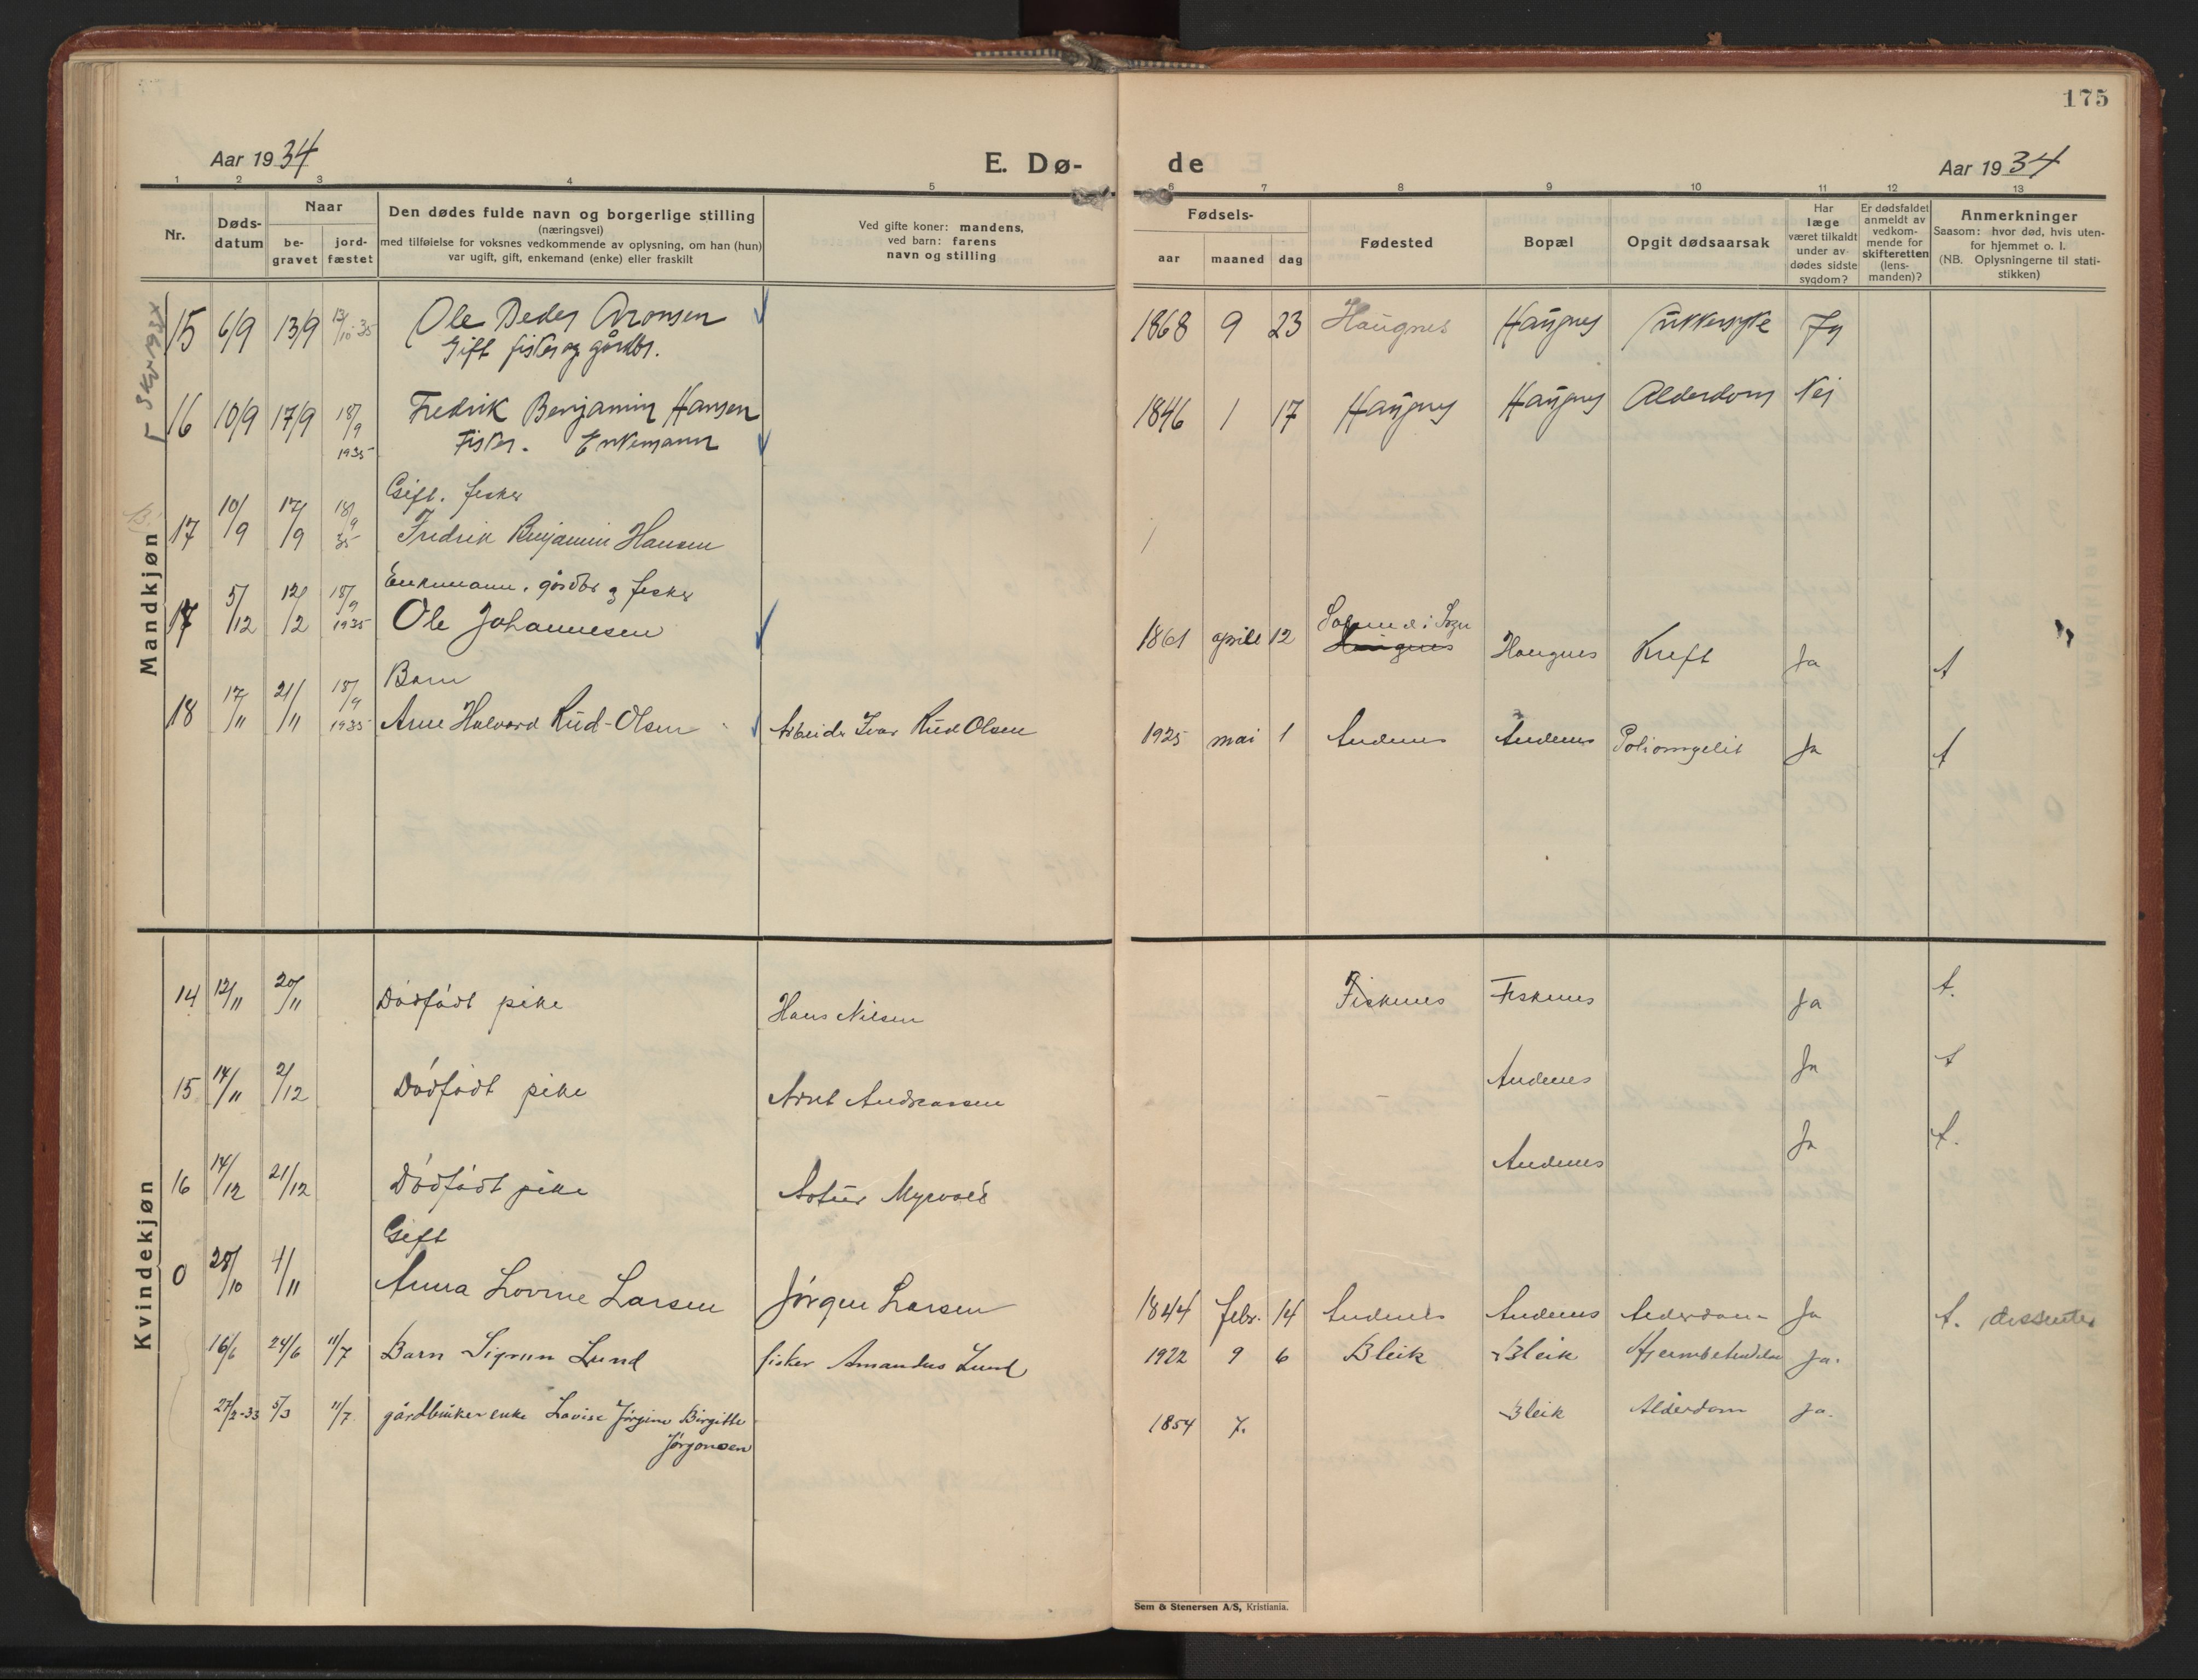 175
Aar 1934
E. Dø-
de
Aar 1934
1 2 3 4 5 6 7 8 9 10 11 12 13
Nr.
Døds-
datum
Naar
be-
gravet
jord-
fæstet
Den dødes fulde navn og borgerlige stilling
(næringsvei)
med tilføielse for voksnes vedkommende av oplysning, om han (hun)
var ugift, gift, enkemand (enke) eller fraskilt
Ved gifte koner: mandens,
ved barn: farens
navn og stilling
Fødsels-
aar maaned dag
Fødested
Bopæl
Opgit dødsaarsak
Har
læge
været tilkaldt
under av-
dødes sidste
sygdom?
Er dødsfaldet
anmeldt av
vedkom-
mende for
skifteretten
(lens-
manden)?
Anmerkninger
Saasom: hvor død, hvis uten-
for hjemmet o. l.
(NB. Oplysningerne til stati-
stikken)
Mandkjøn
15 6/9 13/9 13/10-35 Ole Peder Aronsen 1868 9 23 Haugnes Haugnes Sukkersyke Ja
Gift fisker og gårdbr.
16 10/9 17/9 18/9 1935 Fredrik Benjamin Hansen 1846 1 17 Haugnes Haugnes Alderdom Nei
Fisker. Enkemann
Gift. fisker
17 10/9 17/9 18/9 35 Fredrik Benjamin Hansen
Enkemann. gårdbr og fisker
17 5/12 12/12 18/9 1935 Ole Johannesen 1861 april 12 i Sogn Haugnes Haugnes Kreft Ja A
Barn
18 17/11 21/11 18/9 1935 Arne Halvard Rud-Olsen Arbeider Ivar Rud Olsen 1925 mai 1 Andenes Andenes Poliomyelit Ja A
Kvindekjøn
14 12/11 20/11 Dødfødt pike Hans Nilsen Fiskenes Fiskenes Ja A.
15 14/11 2/12 Dødfødt pike Arnt Andreassen Andenes Ja A
16 14/12 21/12 Dødfødt pike Artur Myrvold Andenes Ja A.
Gift
0 28/10 4/11 Anna Lovine Larsen Jørgen Larsen 1844 febr. 14 Andenes Andenes Alderdom Ja A. dissenter
16/6 24/6 11/7 Barn Sigrun Lund fisker Amandus Lund 1922 9 6 Bleik Bleik Hjernebetendelse Ja.
27/2-33 5/3 11/7 gårdbruker enke Lovise Jørgine Birgitte 1854 7. Bleik Alderdom Ja.
Jørgensen
Sem & Stenersen A/S, Kristiania.